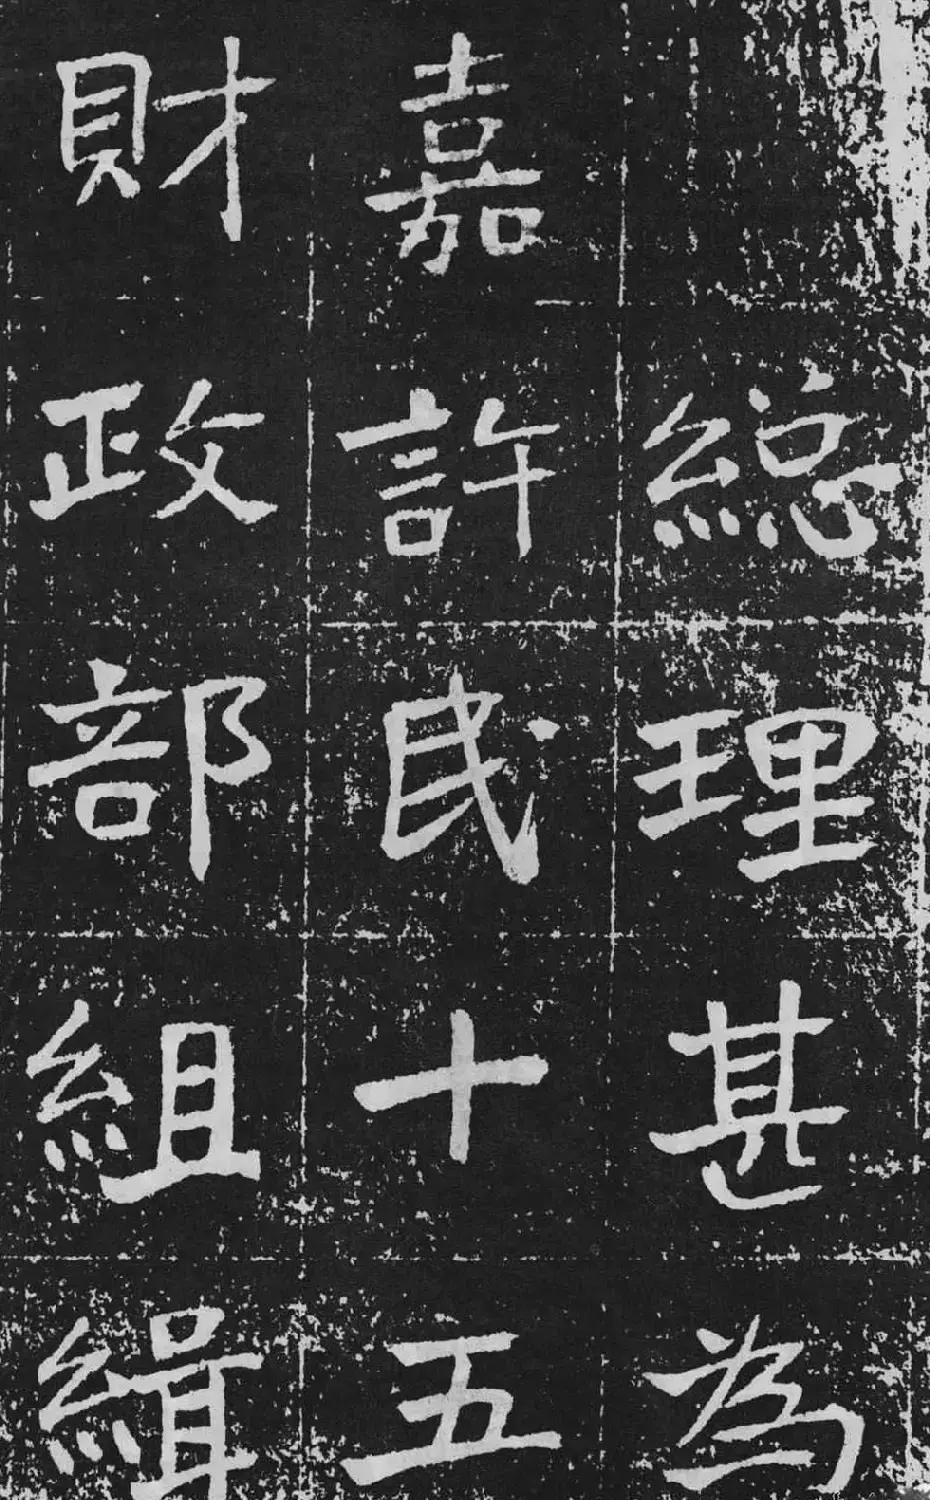 緫理甚為
嘉許民十五
財政部組緝